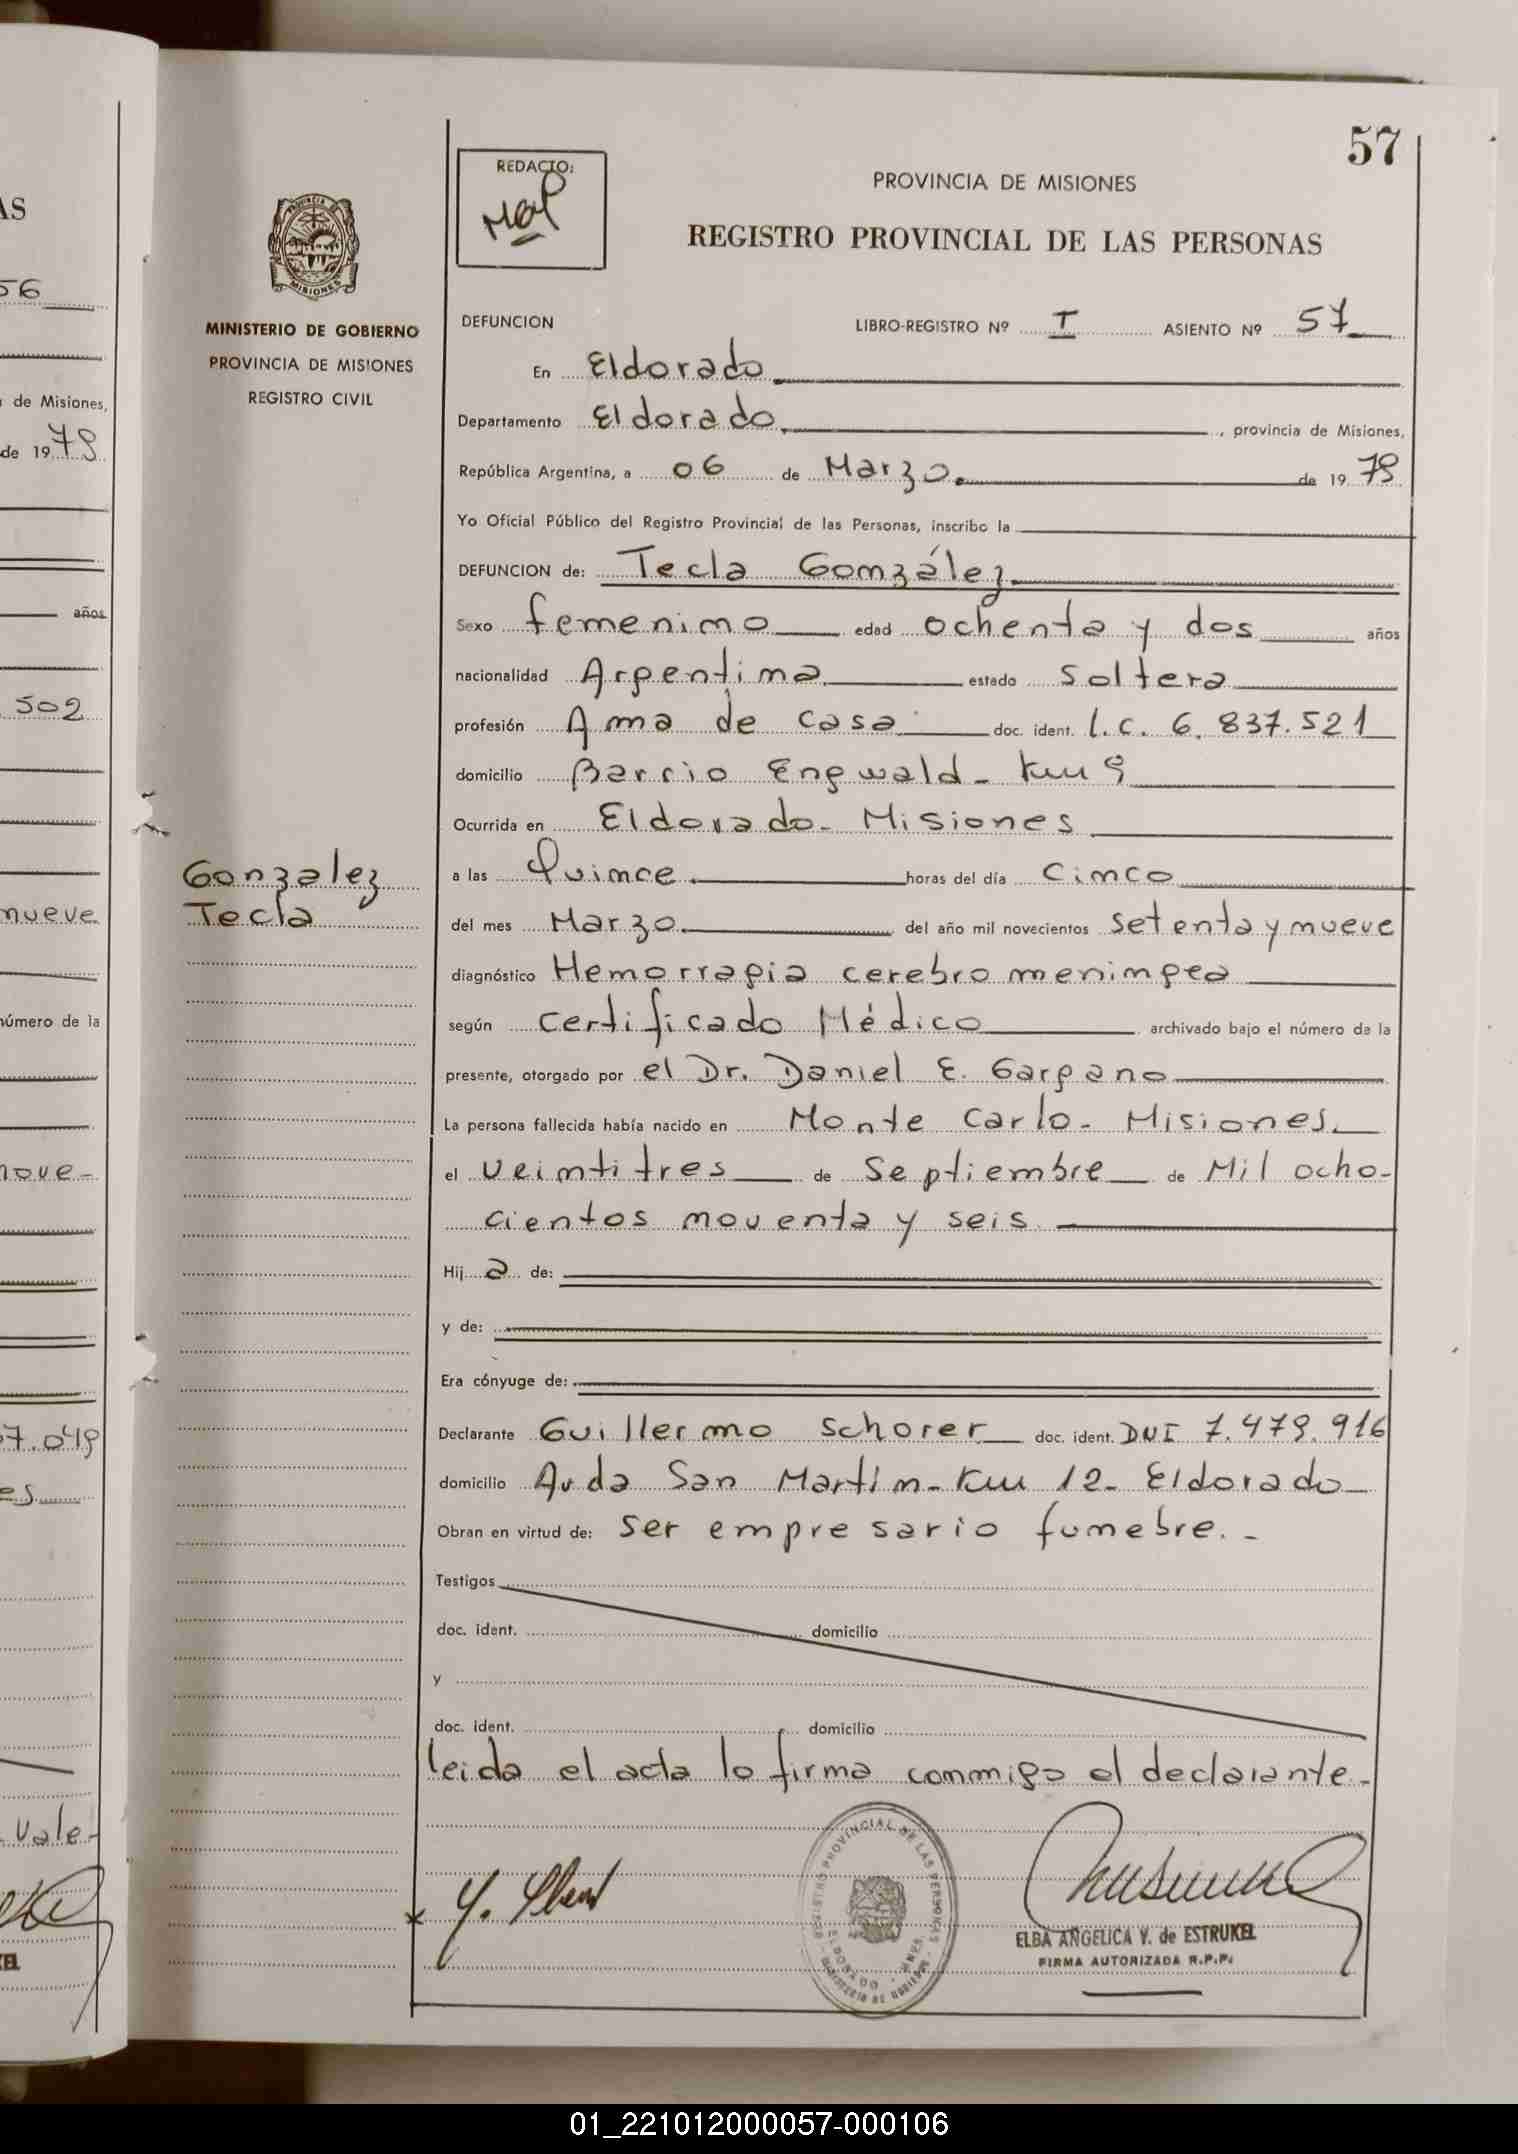 57
REDACTO:
PROVINCIA DE MISIONES
REGISTRO PROVINCIAL DE LAS PERSONAS
MINISTERIO DE GOBIERNO
PROVINCIA DE MISIONES
REGISTRO CIVIL
DEFUNCION LIBRO-REGISTRO Nº I ASIENTO Nº 57
En Eldorado
Departamento Eldorado, provincia de Misiones,
República Argentina, a 06 de Marzo de 1979
Yo Oficial Público del Registro Provincial de las Personas, inscribo la
DEFUNCION de: Tecla González
Sexo femenino edad ochenta y dos años
nacionalidad Argentina estado soltera
profesión Ama de casa doc. ident. l.c. 6.837.521
domicilio Barrio Engwald - Km 9
Ocurrida en Eldorado - Misiones
a las Quince horas del día Cinco
del mes Marzo del año mil novecientos setenta y nueve
diagnóstico Hemorragia cerebro meningea
según Certificado Médico archivado bajo el número de la
presente, otorgado por el Dr. Daniel E. Gargano
La persona fallecida había nacido en Monte Carlo - Misiones
el veintitres de Septiembre de Mil ocho-
cientos noventa y seis
Hija de:
y de:
Era cónyuge de:
Declarante Guillermo Schorer doc. ident. DNI 7.479.916
domicilio Avda San Martín - Km 12 - Eldorado
Obran en virtud de: ser empresario funebre. -
Testigos
doc. ident. domicilio
y
doc. ident. domicilio
leida el acta lo firma conmigo el declarante. -
Gonzalez
Tecla
REGISTRO PROVINCIAL DE LAS PERSONAS
ELDORADO - MNES.
MINISTERIO DE GOBIERNO
ELBA ANGELICA Y. de ESTRUKEL
FIRMA AUTORIZADA R.P.P.
AS
56
de Misiones,
de 1979
años
502
nueve
número de la
nove-
7.049
es
Vale-
EL
01_221012000057-000106